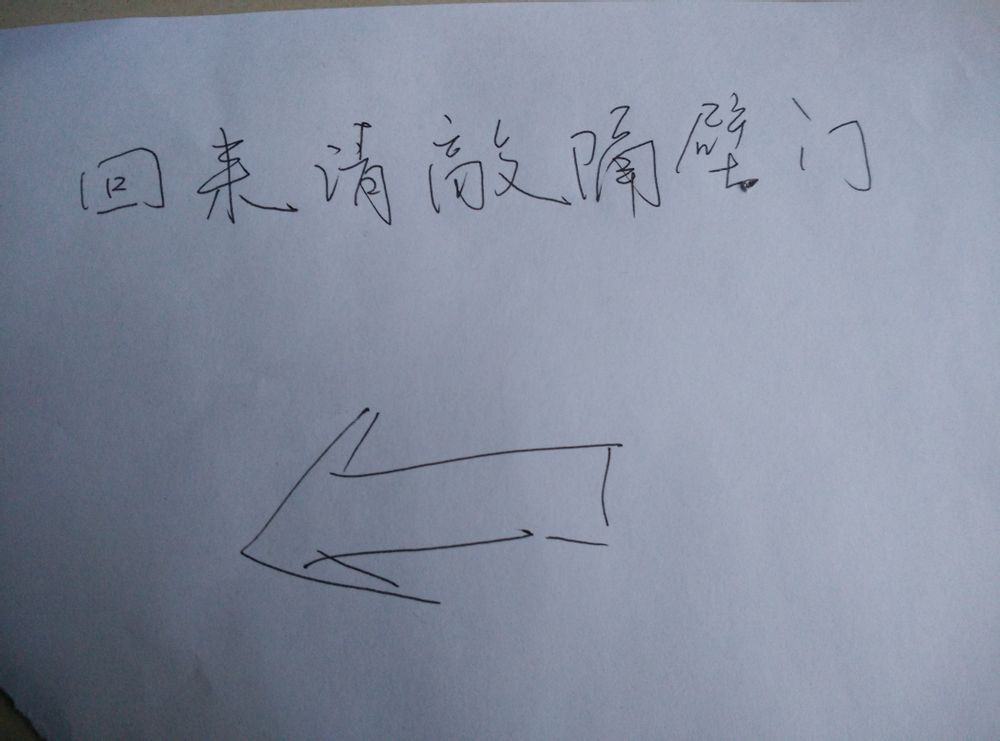 回来请敲隔壁门